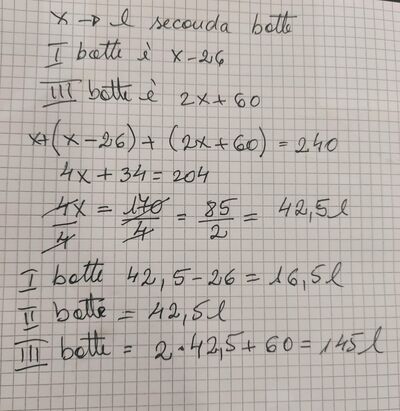 x → l seconda botte
I botte è x-26
III botte è 2x+60
x+(x-26)+(2x+60)=240
4x+34=204
4x/4 = 170/4 = 85/2 = 42,5 l
I botte 42,5-26=16,5l
II botte = 42,5l
III botte = 2·42,5+60=145l